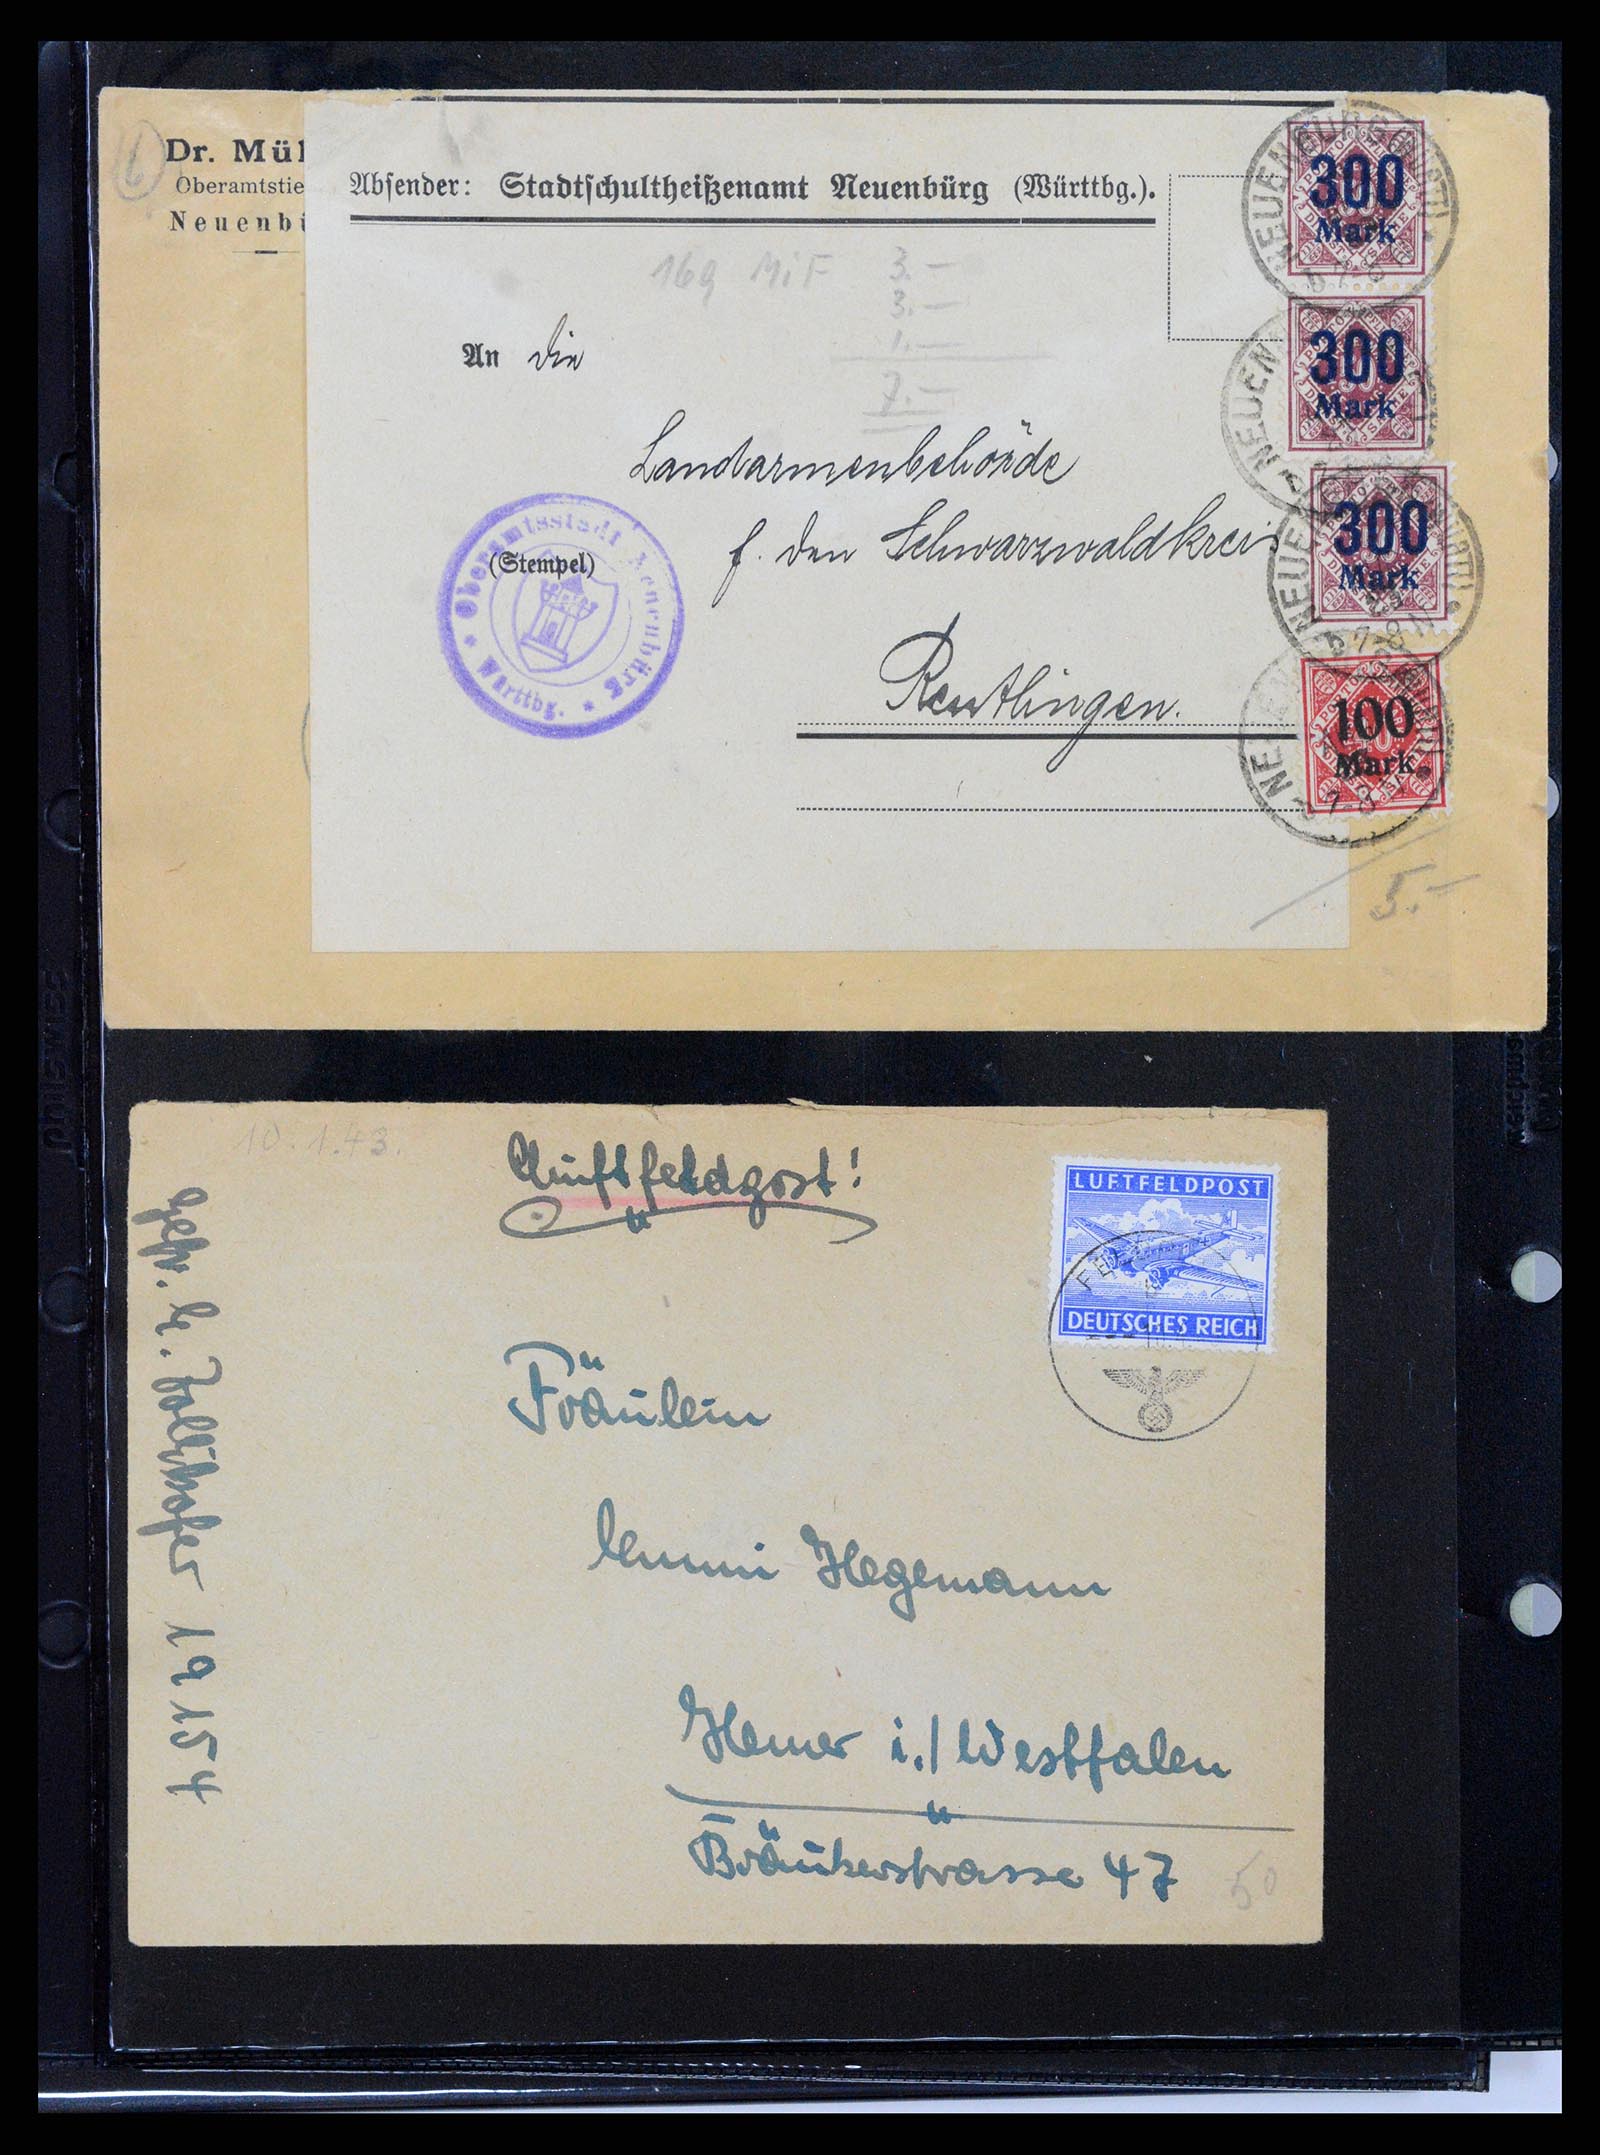 Dr. Mül
Oberamtstie
Neuenbü
Absender: Stadtschultheißenamt Neuenbürg (Württbg.).
169 MiF 3.-
3.-
1.-
7.-
An die
Landarmenbehörde
f. den Schwarzwaldkreis
(Stempel)
Oberamtsstadt Neuenbürg
* Württbg. *
Reutlingen.
NEUENBÜRG (WÜRTT)
300
Mark
300
Mark
300
Mark
100
Mark
5.-
10.1.43.
Luftfeldpost!
LUFTFELDPOST
DEUTSCHES REICH
Fräulein
Hegemann
Hemer i./Westfalen
Bräukerstrasse 47
50
19154